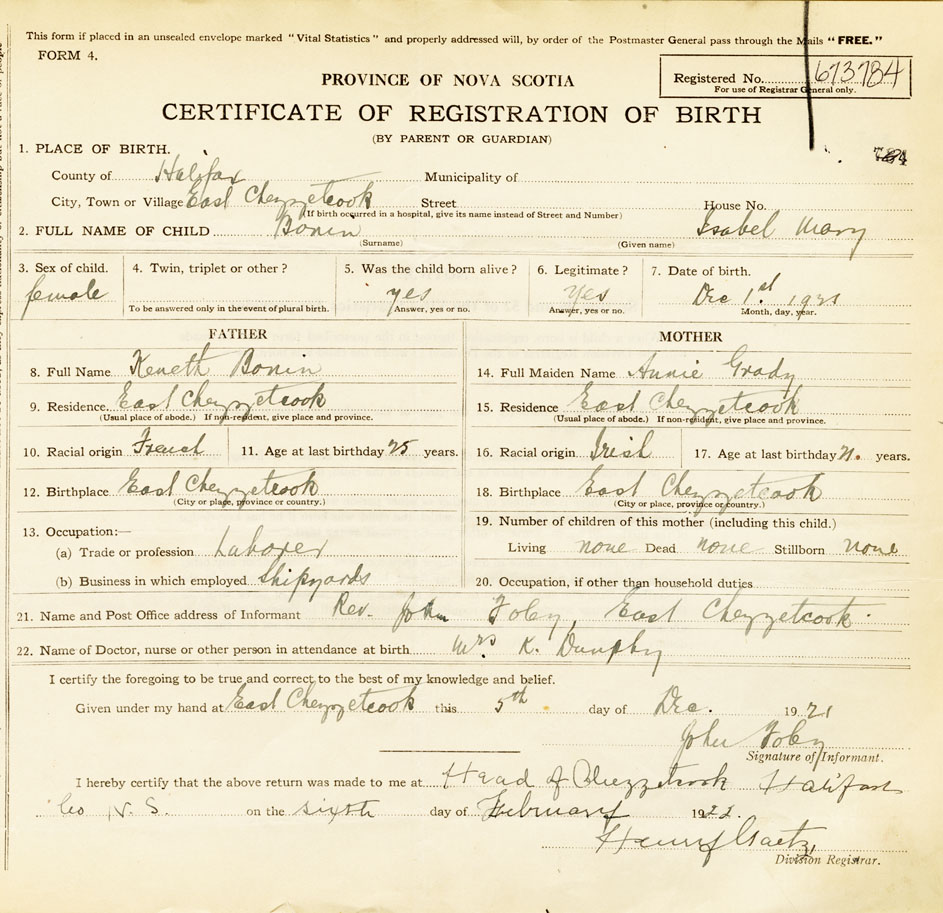 This form if placed in an unsealed envelope marked "Vital Statistics" and properly addressed will, by order of the Postmaster General pass through the Mails "FREE."
FORM 4.
PROVINCE OF NOVA SCOTIA
Registered No. 673784
For use of Registrar General only.
CERTIFICATE OF REGISTRATION OF BIRTH
(BY PARENT OR GUARDIAN)
1. PLACE OF BIRTH.
County of Halifax Municipality of
City, Town or Village East Chezzetcook Street House No.
(If birth occurred in a hospital, give its name instead of Street and Number)
2. FULL NAME OF CHILD Bonin Isabel Mary
(Surname) (Given name)
3. Sex of child. 4. Twin, triplet or other? 5. Was the child born alive? 6. Legitimate? 7. Date of birth.
female yes Yes Dec 1st. 1921
To be answered only in the event of plural birth. Answer, yes or no. Answer, yes or no. Month, day, year.
FATHER
8. Full Name Keneth Bonin
9. Residence. East Chezzetcook
(Usual place of abode.) If non-resident, give place and province.
10. Racial origin French 11. Age at last birthday 25 years.
12. Birthplace East Chezzetcook
(City or place, province or country.)
13. Occupation:—
(a) Trade or profession Laborer
(b) Business in which employed Shipyards
MOTHER
14. Full Maiden Name Annie Grady
15. Residence East Chezzetcook
(Usual place of abode.) If non-resident, give place and province.
16. Racial origin Irish 17. Age at last birthday 21. years.
18. Birthplace East Chezzetcook
(City or place, province or country.)
19. Number of children of this mother (including this child.)
Living none Dead none Stillborn none
20. Occupation, if other than household duties
21. Name and Post Office address of Informant Rev. John Foley, East Chezzetcook.
22. Name of Doctor, nurse or other person in attendance at birth Mrs K. Dunphy
I certify the foregoing to be true and correct to the best of my knowledge and belief.
Given under my hand at East Chezzetcook this 5th day of Dec. 1921
John Foley
Signature of Informant.
I hereby certify that the above return was made to me at Head of Chezzetcook Halifax
Co N. S. on the sixth day of February 1922.
Henry Gaetz,
Division Registrar.